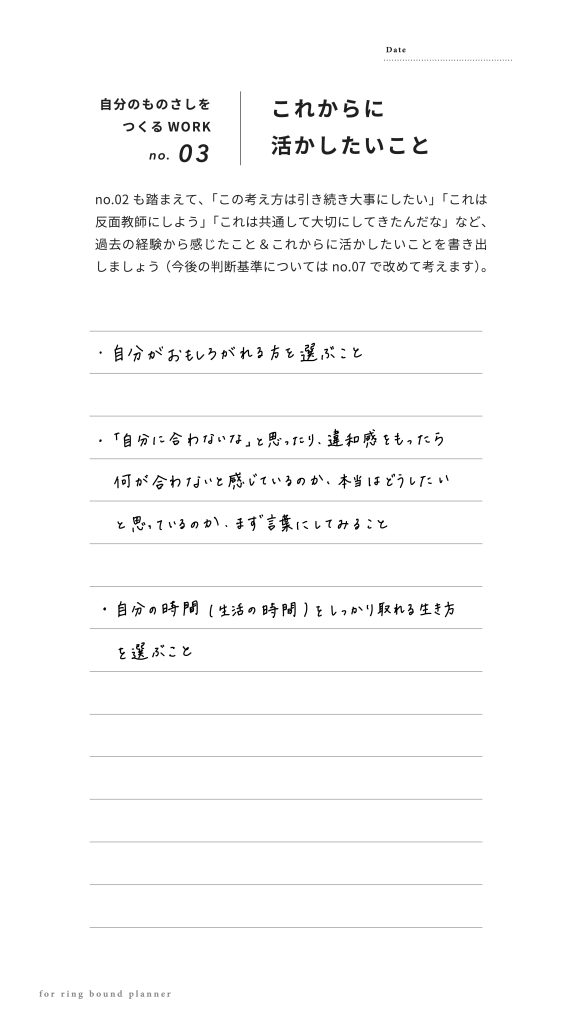 Date
自分のものさしを
つくる WORK
no. 03
これからに
活かしたいこと
no.02 も踏まえて、「この考え方は引き続き大事にしたい」「これは
反面教師にしよう」「これは共通して大切にしてきたんだな」など、
過去の経験から感じたこと＆これからに活かしたいことを書き出
しましょう（今後の判断基準については no.07 で改めて考えます）。
・自分がおもしろがれる方を選ぶこと
・「自分に合わないな」と思ったり、違和感をもったら
何が合わないと感じているのか、本当はどうしたい
と思っているのか、まず言葉にしてみること
・自分の時間（生活の時間）をしっかり取れる生き方
を選ぶこと
for ring bound planner